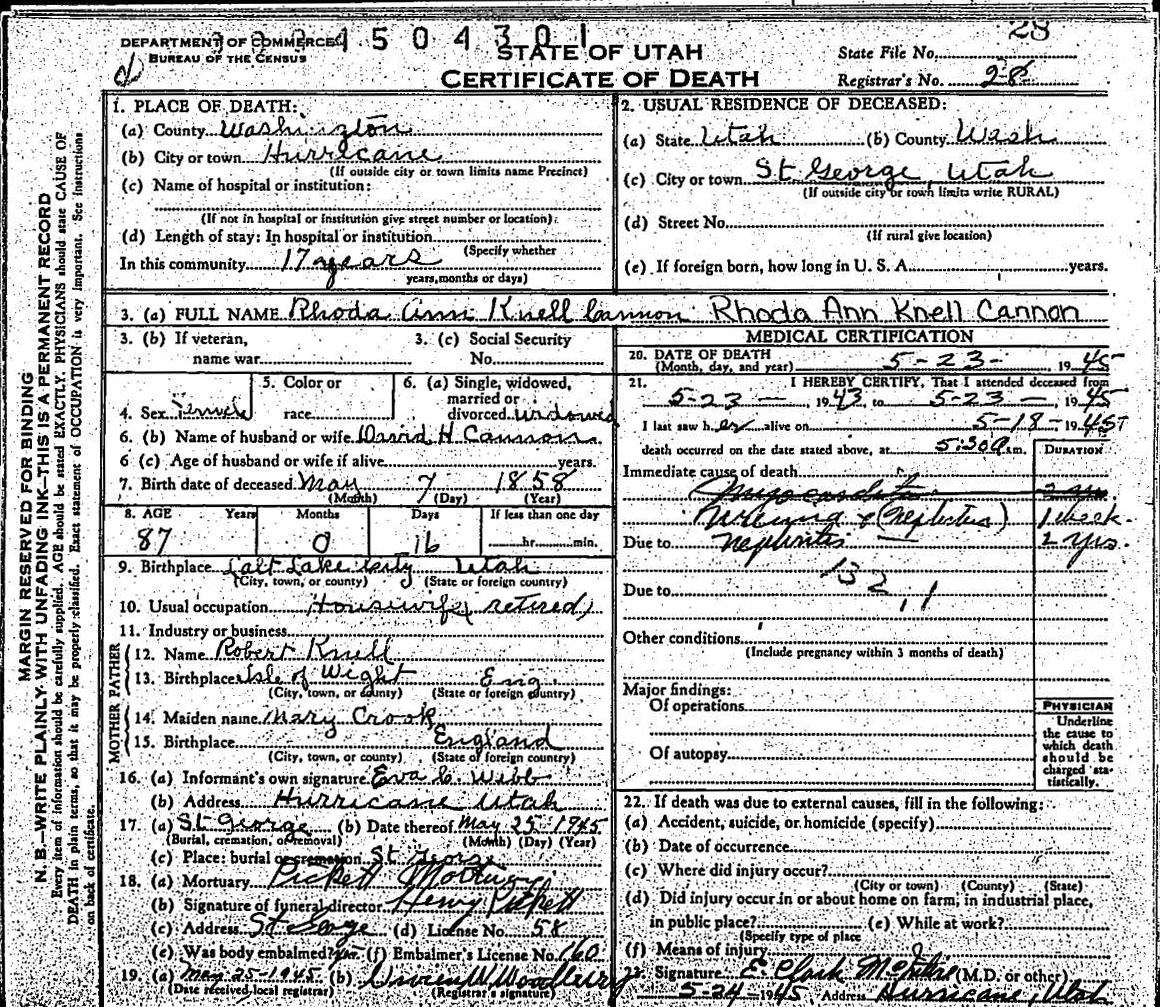 28
DEPARTMENT OF COMMERCE
BUREAU OF THE CENSUS
4504301
STATE OF UTAH
CERTIFICATE OF DEATH
State File No.
Registrar's No. 28
MARGIN RESERVED FOR BINDING
N. B.—WRITE PLAINLY WITH UNFADING INK—THIS IS A PERMANENT RECORD
Every item of information should be carefully supplied. AGE should be stated EXACTLY. PHYSICIANS should state CAUSE OF
DEATH in plain terms, so that it may be properly classified. Exact statement of OCCUPATION is very important. See instructions
on back of certificate.
1. PLACE OF DEATH:
(a) County Washington
(b) City or town Hurricane
(If outside city or town limits name Precinct)
(c) Name of hospital or institution:
(If not in hospital or institution give street number or location)
(d) Length of stay: In hospital or institution
(Specify whether
In this community 17 years
years, months or days)
2. USUAL RESIDENCE OF DECEASED:
(a) State Utah (b) County Wash
(c) City or town St. George, Utah
(If outside city or town limits write RURAL)
(d) Street No.
(If rural give location)
(e) If foreign born, how long in U. S. A. years.
3. (a) FULL NAME Rhoda Ann Knell Cannon Rhoda Ann Knell Cannon
3. (b) If veteran,
name war
3. (c) Social Security
No.
4. Sex Female
5. Color or
race
6. (a) Single, widowed,
married or
divorced widowed
6. (b) Name of husband or wife David H Cannon
6 (c) Age of husband or wife if alive years.
7. Birth date of deceased May 7 1858
(Month) (Day) (Year)
8. AGE Years Months Days If less than one day
87 0 16 hr. min.
9. Birthplace Salt Lake City Utah
(City, town, or county) (State or foreign country)
10. Usual occupation Housewife, retired
11. Industry or business
FATHER
12. Name Robert Knell
13. Birthplace Isle of Wight Eng.
(City, town, or county) (State or foreign country)
MOTHER
14. Maiden name Mary Crook
15. Birthplace England
(City, town, or county) (State or foreign country)
16. (a) Informant's own signature Eva C. Webb
(b) Address Hurricane Utah
17. (a) St George (b) Date thereof May 25-1945
(Burial, cremation, or removal) (Month) (Day) (Year)
(c) Place: burial or cremation St. George
18. (a) Mortuary Pickett Mortuary
(b) Signature of funeral director Henry Pickett
(c) Address St George (d) License No. 58
(e) Was body embalmed? yes (f) Embalmer's License No. 160
19. (a) May 25-1945 (b)
(Date received local registrar) (Registrar's signature)
MEDICAL CERTIFICATION
20. DATE OF DEATH
(Month, day, and year) 5-23- 1945
21. I HEREBY CERTIFY, That I attended deceased from
5-23- 1943, to 5-23- 1945
I last saw her alive on 5-18-1945
death occurred on the date stated above, at 5:30 a m.
DURATION
Immediate cause of death
1 week.
Due to Nephritis 2 yrs.
132.1
Due to
Other conditions
(Include pregnancy within 3 months of death)
Major findings:
Of operations
Of autopsy
PHYSICIAN
Underline
the cause to
which death
should be
charged sta-
tistically.
22. If death was due to external causes, fill in the following:
(a) Accident, suicide, or homicide (specify)
(b) Date of occurrence
(c) Where did injury occur?
(City or town) (County) (State)
(d) Did injury occur in or about home on farm, in industrial place,
in public place? (e) While at work?
(Specify type of place
(f) Means of injury
Signature E. Clark McIntire (M.D. or other)
5-24-1945 Address Hurricane, Utah